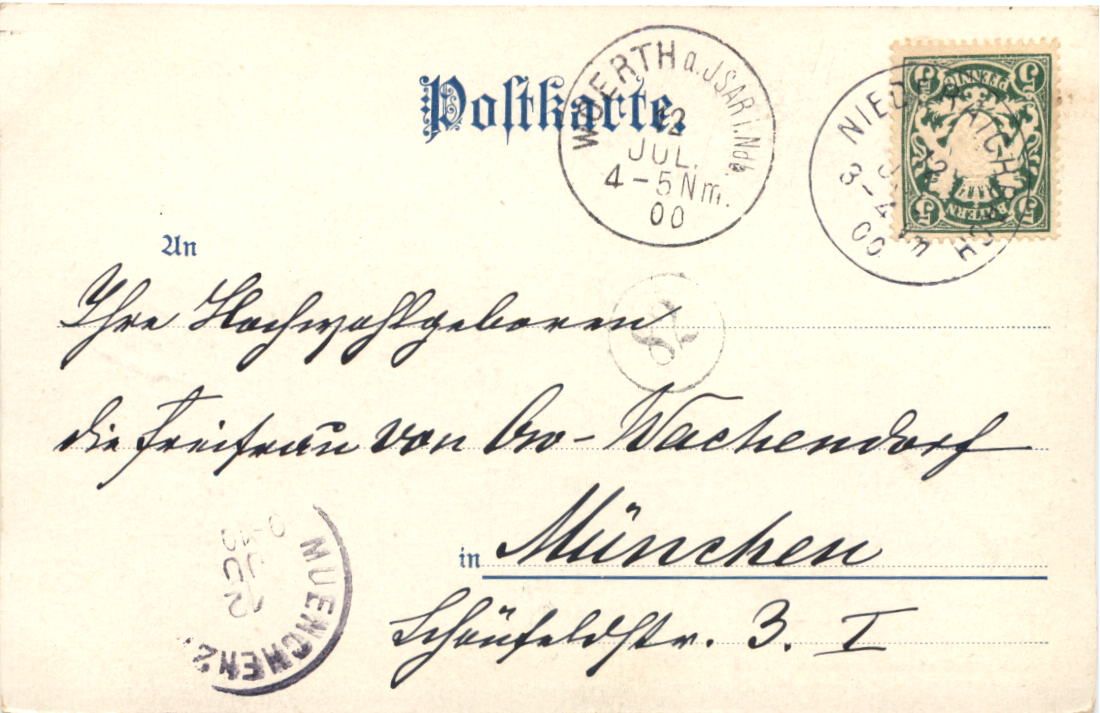 Postkarte.
WOERTH a. JSAR i. Ndb.
12
JUL.
4-5Nm.
00
NIEDERAICHBACH
12
3-4Nm
00
PFENNIG
5 5
BAYERN
5 5
An
Ihre Hochwohlgeboren
28
die Freifrau von Ow-Wachendorf
in München
Schönfeldstr. 3. I
MUENCHEN 2.
12
JUL